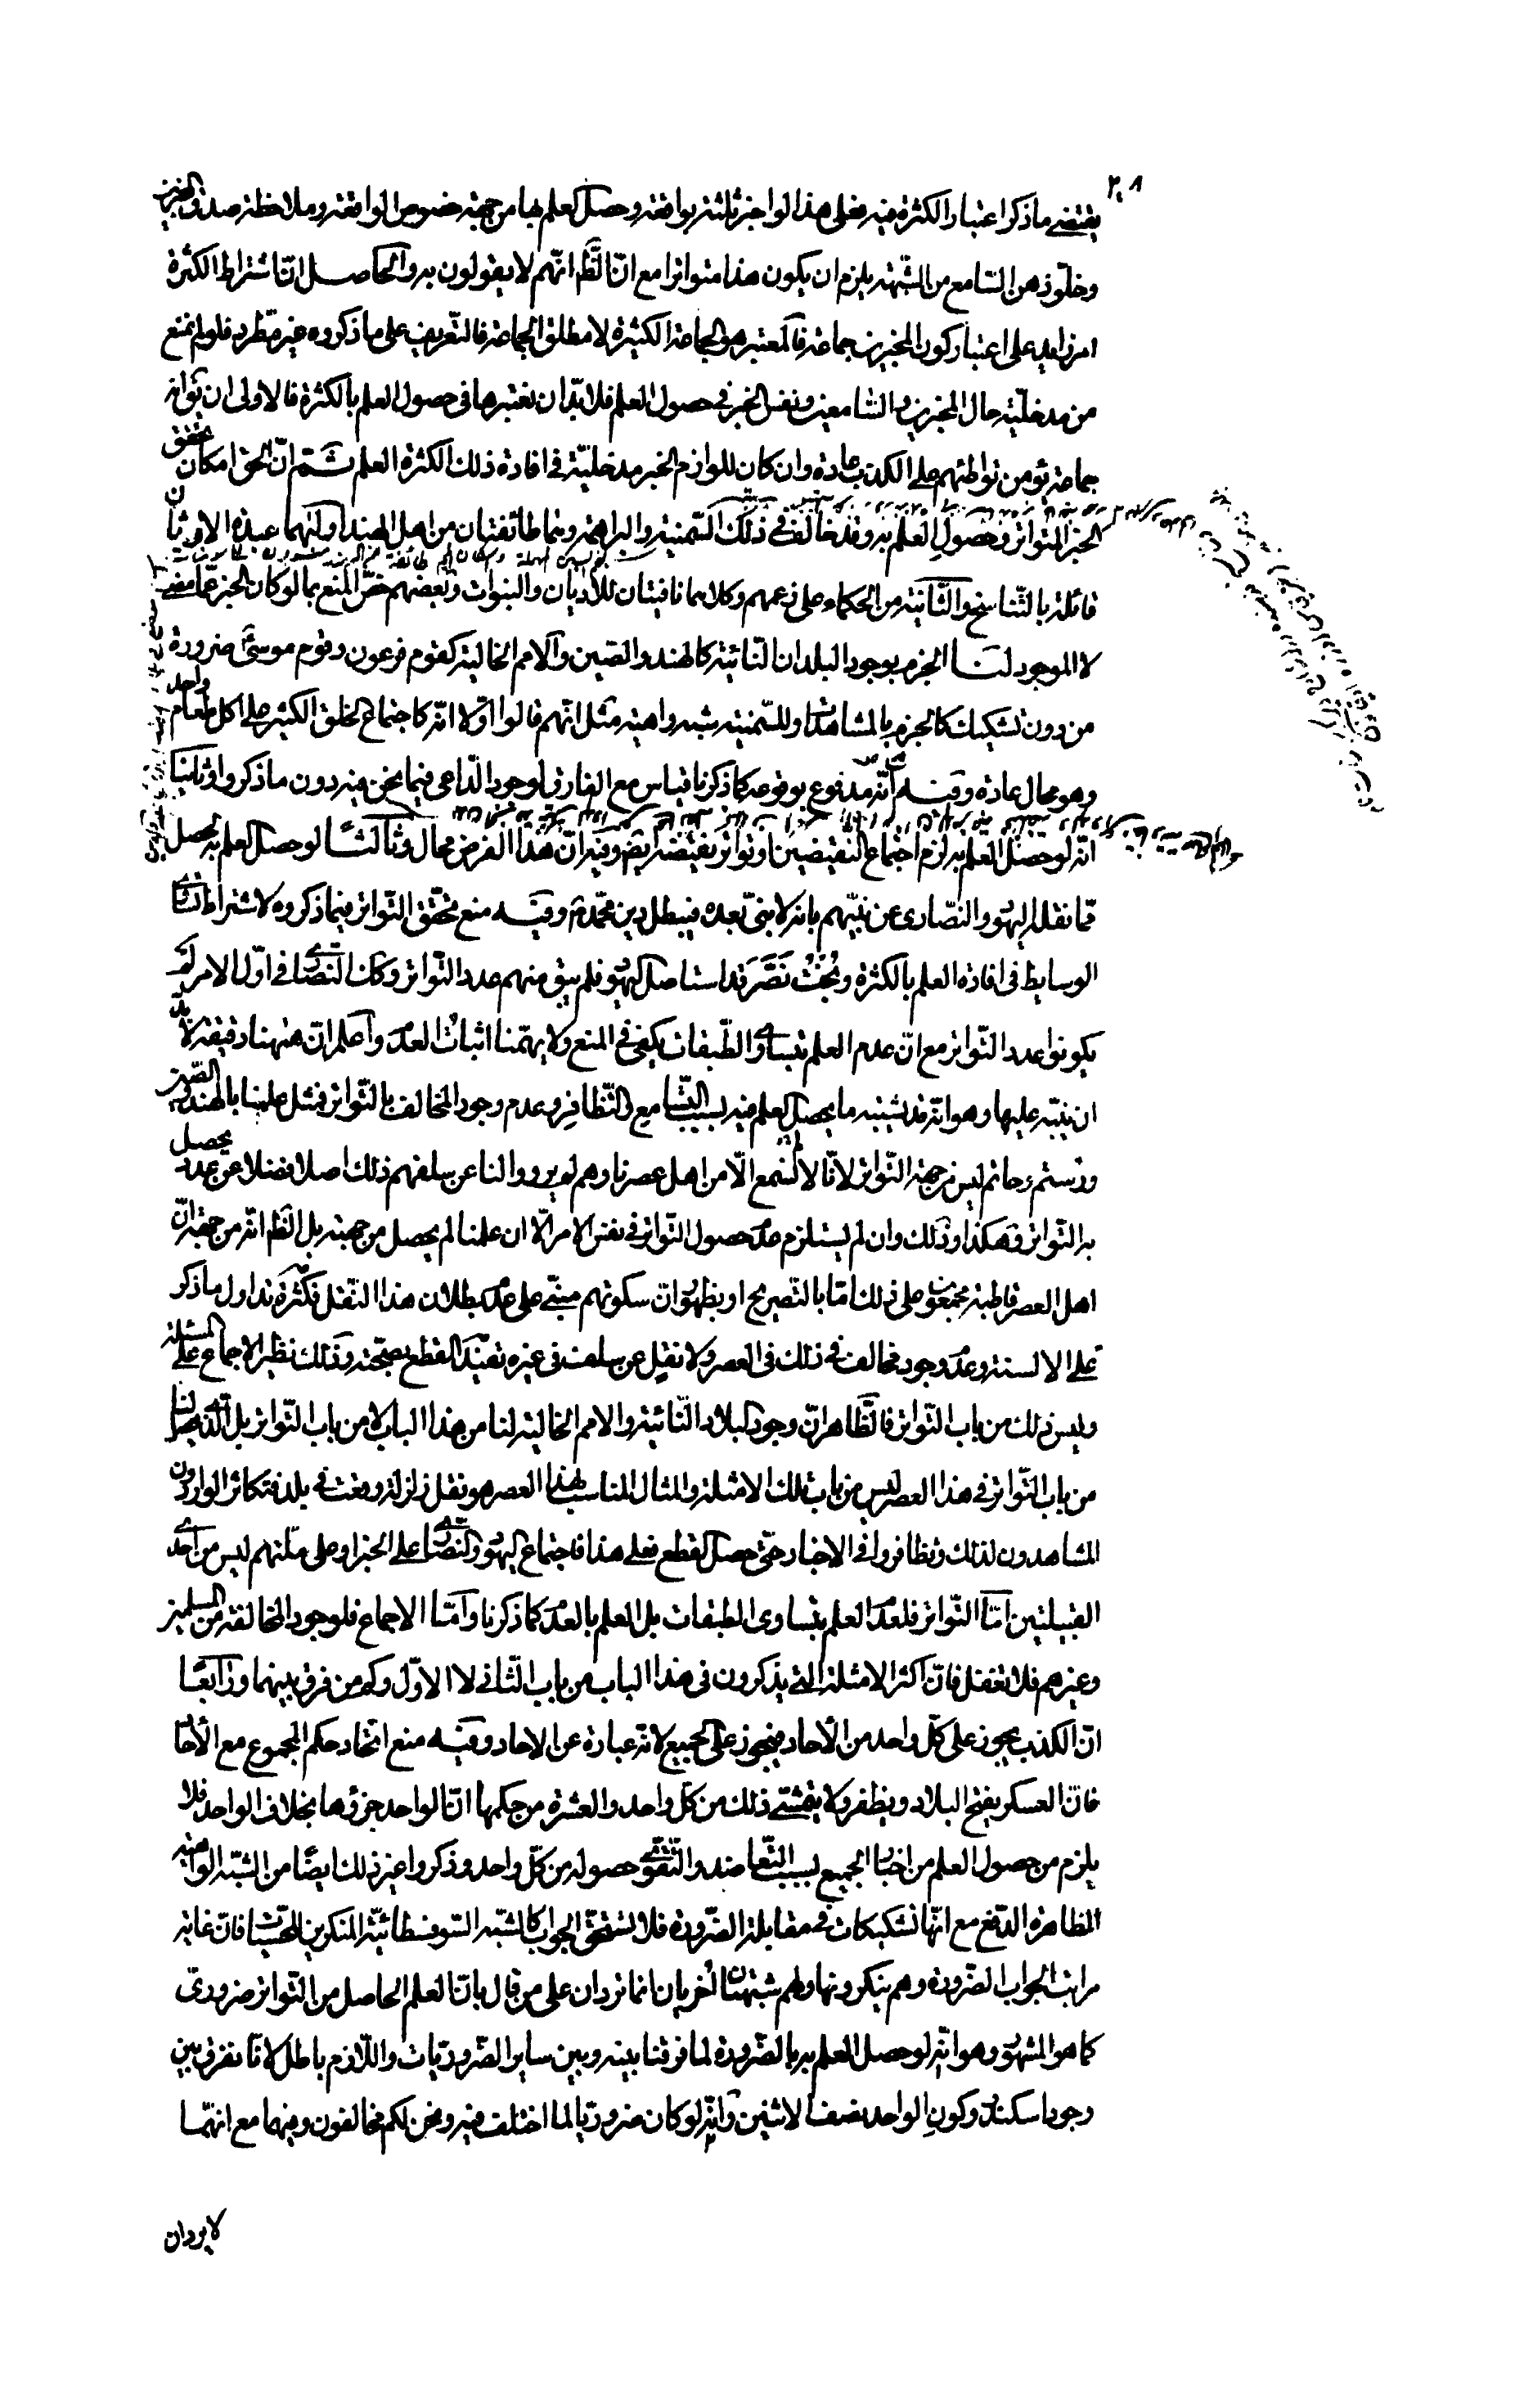 ٢٠٨
يقتضى ما ذكر اعتبار الكثرة فيه فعلى هذا لو اخبر ثلثة بواقعة وحصل العلم بها من جهة خصوص الواقعة وملاحظة صدق المخبرين
وخلوّ ذهن السّامع من الشّبهة يلزم ان يكون هذا متواترا مع انّ الظّ انّهم لا يقولون به والحاصل انّ اشتراط الكثرة
امر زايد على اعتبار كون المخبرين جماعة فالمعتبر هو الجماعة الكثيرة لا مطلق الجماعة فالتّعريف على ما ذكروه غير مطّرد فلو لم نمنع
من مدخليّة حال المخبرين والسّامعين ونفس الخبر في حصول العلم فلا بدّ ان نعتبرها في حصول العلم بالكثرة فالاولى ان يق انّه خبر
جماعة يؤمن تواطئهم على الكذب عادة وان كان للوازم الخبر مدخليّة في افادة ذلك الكثرة العلم ثمّ انّ الحق امكان تحقق
الخبر المتواتر وحصول العلم به وقد خالف في ذلك السّمنية والبراهمة وهما طائفتان من اهل الهند اوليهما عبدة الاوثان
قائلة بالتّناسخ والثّانية من الحكماء على زعمهم وكلاهما نافيتان للاديان والنبوات وبعضهم خصّ المنع بما لو كان الخبر عمّا مضى
لا الموجود لنا الجزم بوجود البلدان النّائية كالهند والصّين والامم الخالية كقوم فرعون وقوم موسى ضرورة
من دون تشكيك كالجزم بالمشاهدات وللسّمنية شبه واهية مثل انّهم قالوا اوّلا انّه كاجتماع الخلق الكثير على اكل طعام واحد
وهو محال عادة وفيه انّه مدفوع بوقوعه كما ذكرنا قياس مع الفارق لوجود الدّاعى فيما نحن فيه دون ما ذكروا وثانيا
انّه لو حصل العلم به لزم اجتماع النقيضين اذ تواتر نقيضه ايض وفيه انّ هذا الفرض محال وثالثا لو حصل العلم به لحصل
ممّا نقله اليهود والنصّارى عن نبيّهم بانه لا نبىّ بعده فيبطل دين محمّد وفيه منع تحقق التّواتر فيما ذكروه لاشتراط تساوى
الوسايط في افادة العلم بالكثرة وبُخت نَصَّر قد استاصل اليهود فلم يبق منهم عدد التّواتر وكذا النّصارى في اوّل الامر لم
يكونوا عدد التّواتر مع انّ عدم العلم بتساوى الطّبقات يكفى في المنع ولا يهمّنا اثبات العدم واعلم انّ ههنا دقيقة لا بدّ
ان ينبّه عليها وهو انّه قد يشتبه ما يحصل العلم فيه بسبب التّسامع والتّظافر وعدم وجود المخالف بالتّواتر فمثل علمنا بالهند والصّين
ورستم وحاتم ليس من جهة التّواتر لانّا لا نسمع الّا من اهل عصرنا وهم لم يرووا لنا عن سلفهم ذلك اصلا فضلا عن عدد يحصل
به التّواتر وهكذا وذلك وان لم يستلزم عدم حصول التّواتر في نفس الامر الّا ان علمنا لم يحصل من جهته بل الظّ انّه من جهة انّ
اهل العصر قاطبة مجمعون على ذلك امّا بالتّصريح او بظهور انّ سكوتهم مبنىّ على عدم بطلان هذا النّقل فكثرة تداول ما ذكر
على الالسنة وعدم وجود مخالف في ذلك في العصر ولا نقل عن سلف في غيره تفيد القطع بصحّته وذلك نظير الاجماع على المسئلة
وليس ذلك من باب التّواتر فالظّاهر انّ وجود البلاد النّائية والامم الخالية لنا من هذا الباب لا من باب التّواتر بل الّذى يحصل لنا
من باب التّواتر في هذا العصر ليس من باب تلك الامثلة والمثال المناسب لهذا العصر هو نقل زلزلة وقعت في بلد فتكاثر الواردون
المشاهدون لذلك وتظافروا في الاخبار حتّى حصل القطع فعلى هذا فاجتماع اليهود والنّصارى على الخبر او على ملّتهم ليس من احدى
القبيلتين امّا التّواتر فلعدم العلم بتساوى الطبقات بل العلم بالعدم كما ذكرنا وامّا الاجماع فلوجود المخالفة من المسلمين
وغيرهم فلا تغفل فانّ اكثر الامثلة الّتى يذكرون في هذا الباب من باب الثّانى لا الاوّل وكم من فرق بينهما ورابعًا
انّ الكذب يجوز على كلّ واحد من الآحاد فيجوز على الجميع لانّه عبارة عن الآحاد وفيه منع اتّحاد حكم المجموع مع الآحاد
فانّ العسكر يفتح البلاد ويظفر ولا يتمشّى ذلك من كلّ واحد والعشرة من حكمها انّ الواحد جزؤها بخلاف الواحد فلا
يلزم من حصول العلم من اخبار الجميع بسبب التّعاضد والتّقوّى حصوله من كلّ واحد وذكروا غير ذلك ايضًا من الشّبه الواهية
الظاهرة الدّفع مع انّها تشكيكات في مقابلة الضّرورة فلا تستحقّ الجواب كالشّبه السّوفسطائيّة المنكرين للحسّيّات فانّ غاية
مراتب الجواب الضّرورة وهم ينكرونها ولهم شبهتان اُخريان انما تردان على من قال بانّ العلم الحاصل من التّواتر ضرورىّ
كما هو المشهور وهو انّه لو حصل العلم به بالضّرورة لما فرقنا بينه وبين ساير الضّروريّات واللّازم باطل لانّا نفرق بين
وجود اسكندر وكون الواحد نصفا لاثنين وانّه لو كان ضروريّا لما اختلف فيه ونحن لكم مخالفون وفيهما مع انهمّا
لا يردان